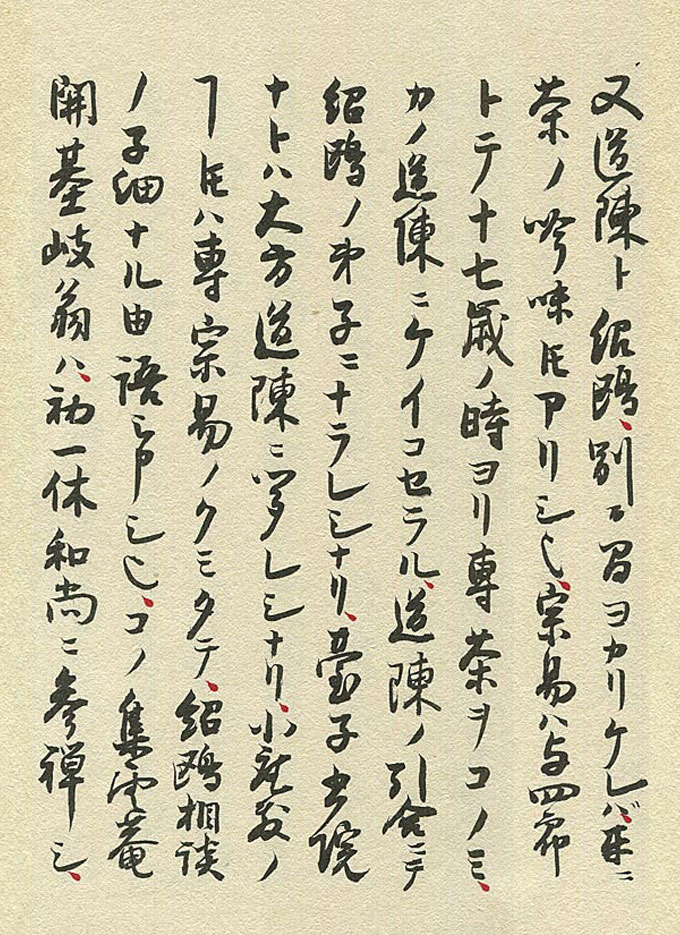 又道陳ト紹鴎、別ニ間ヨカリケレバ、互ニ
茶ノ吟味𪜈アリシ也、宗易ハ与四郎
トテ十七歳ノ時ヨリ専茶ヲコノミ、
カノ道陳ニケイコセラル、道陳ノ引合ニテ
紹鴎ノ弟子ニナラレシナリ、臺子書院
ナトハ大方道陳ニ聞レシナリ、小座敷ノ
ヿ𪜈ハ専宗易ノクミタテ、紹鴎相談
ノ子細ナル由語申シ也、コノ集雲菴
開基岐翁ハ、初一休和尚ニ参禅シ、